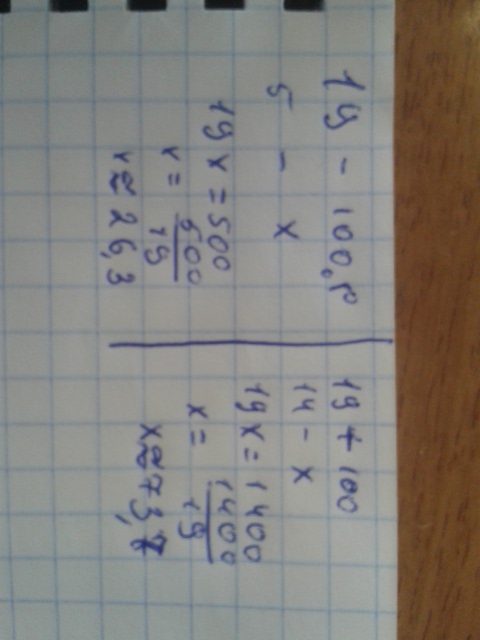 19 - 100%
5 - x
19x = 500
x = 500
19
x ≈ 26,3
19 + 100
14 - x
19x = 1400
x = 1400
19
x ≈ 73,7